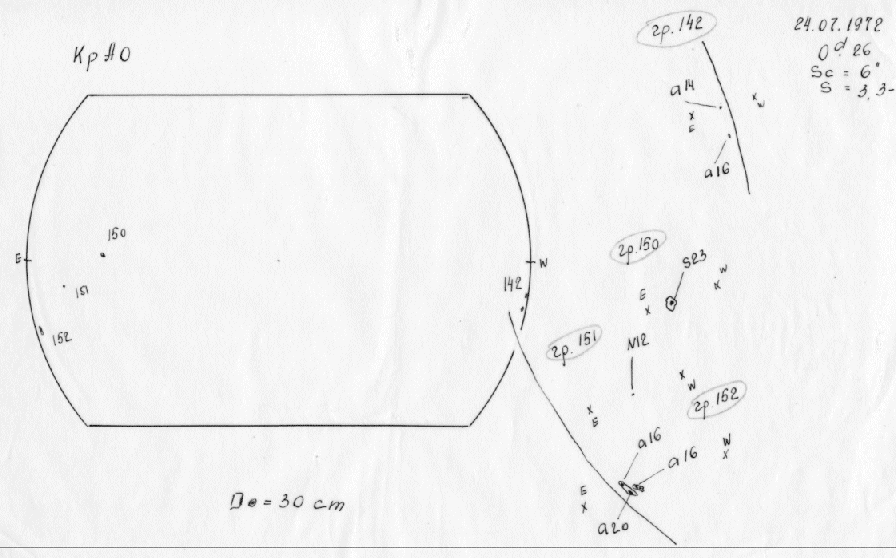 КрАО
гр. 142
24.07.1972
0ᵈ 26
Sc = 6"
S = 3, 3-
a14
X
E
X
W
a16
150
E
W
151
142
152
гр. 150
S23
W
X
E
X
гр. 151
N12
X
W
гр. 152
X
E
a16
a16
W
X
E
X
a20
D⊙ = 30 cm